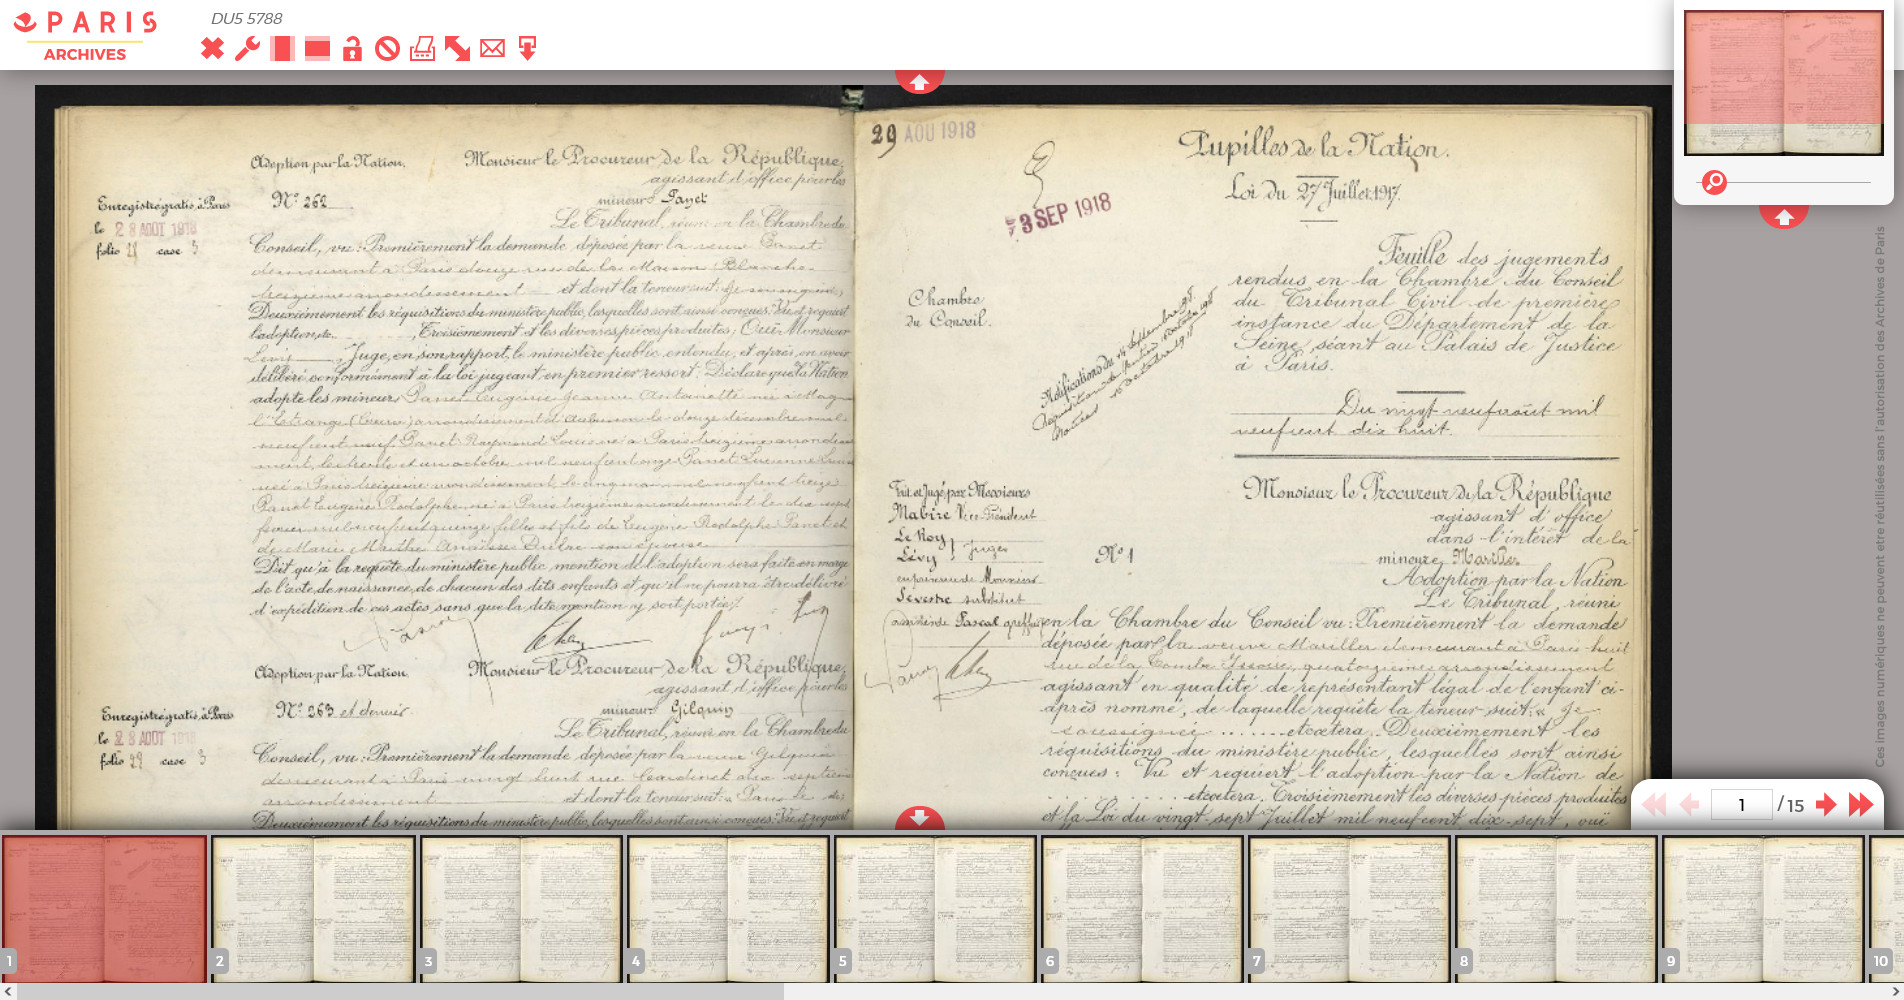 PARIS
ARCHIVES
DU5 5788
Adoption par la Nation.
Monsieur le Procureur de la République,
agissant d'office pour les
Nº 262
mineurs Panet
Enregistré gratis, à Paris
le 28 AOÛT 1918
folio case 3
Le Tribunal, réuni en la Chambre du
Conseil, vu: Premièrement la demande déposée par la veuve Panet
demeurant à Paris douze rue de la Maison Blanche
treizième arrondissement et dont la teneur suit: Je soussignée
Deuxièmement les réquisitions du ministère public, lesquelles sont ainsi conçues: Vu et requiert
l'adoption, etc. , Troisièmement et les diverses pièces produites; Ouï Monsieur
Lévy , Juge, en son rapport, le ministère public entendu, et après en avoir
délibéré conformément à la loi jugeant en premier ressort: Déclare que la Nation
adopte les mineurs Panet Eugénie Jeanne Antoinette née à
arrondissement d'Aubusson le douze décembre mil
neuf cent neuf Panet Raymond Louis né à Paris treizième arrondisse
ment, le trente et un octobre mil neuf cent onze Panet Lucienne
née à Paris treizième arrondissement, le cinq mil neuf cent treize
Panet Eugène Rodolphe, né à Paris treizième arrondissement le dix sept
février mil neuf cent quinze, filles et fils de Eugène Rodolphe Panet et
de Marie Marthe son épouse
Dit qu'à la requête du ministère public mention de l'adoption sera faite en marge
de l'acte de naissance, de chacun des dits enfants et qu'il ne pourra être délivré
d'expédition de ces actes sans que la dite mention y soit portée.
Adoption par la Nation.
Monsieur le Procureur de la République,
agissant d'office pour les
Nº 263 et dernier.
mineurs Gilquin
Enregistré gratis, à Paris
le 28 AOÛT 1918
folio 29 case 3
Le Tribunal, réuni en la Chambre du
Conseil, vu: Premièrement la demande déposée par la veuve Gilquin
demeurant à Paris vingt huit rue Cardinet dix septième
arrondissement et dont la teneur suit: « Paris le
Deuxièmement les réquisitions du ministère public, lesquelles sont ainsi conçues: Vu et requiert
29 AOU 1918
3 SEP 1918
Pupilles de la Nation.
Loi du 27 Juillet 1917.
Feuille des jugements
rendus en la Chambre du Conseil
du Tribunal Civil de première
instance du Département de la
Seine, séant au Palais de Justice
à Paris.
Chambre
du Conseil.
Du vingt neuf août mil
neuf cent dix huit.
Monsieur le Procureur de la République
agissant d'office
dans l'intérêt de la
mineure Marilles
Adoption par la Nation
Le Tribunal, réuni
Fait et Jugé par Messieurs
Mabire Vice-Président
Le Roy
Lévy } Juges
en présence de Monsieur
Sevestre substitut
assisté de Pascal greffier
Nº 1
en la Chambre du Conseil vu: Premièrement la demande
déposée par la veuve Marilles demeurant à Paris huit
rue de la Tombe Issoire, quatorzième arrondissement
agissant en qualité de représentant légal de l'enfant ci-
après nommé, de laquelle requête la teneur suit: « Je
soussignée ....... etcætera. Deuxièmement les
réquisitions du ministère public, lesquelles sont ainsi
conçues: Vu et requiert l'adoption par la Nation de
.......... etcætera. Troisièmement les diverses pièces produites
et la Loi du vingt-sept Juillet mil neuf cent dix-sept, ouï
Ces images numériques ne peuvent etre réutilisées sans l'autorisation des Archives de Paris
1 / 15
1
2
3
4
5
6
7
8
9
10